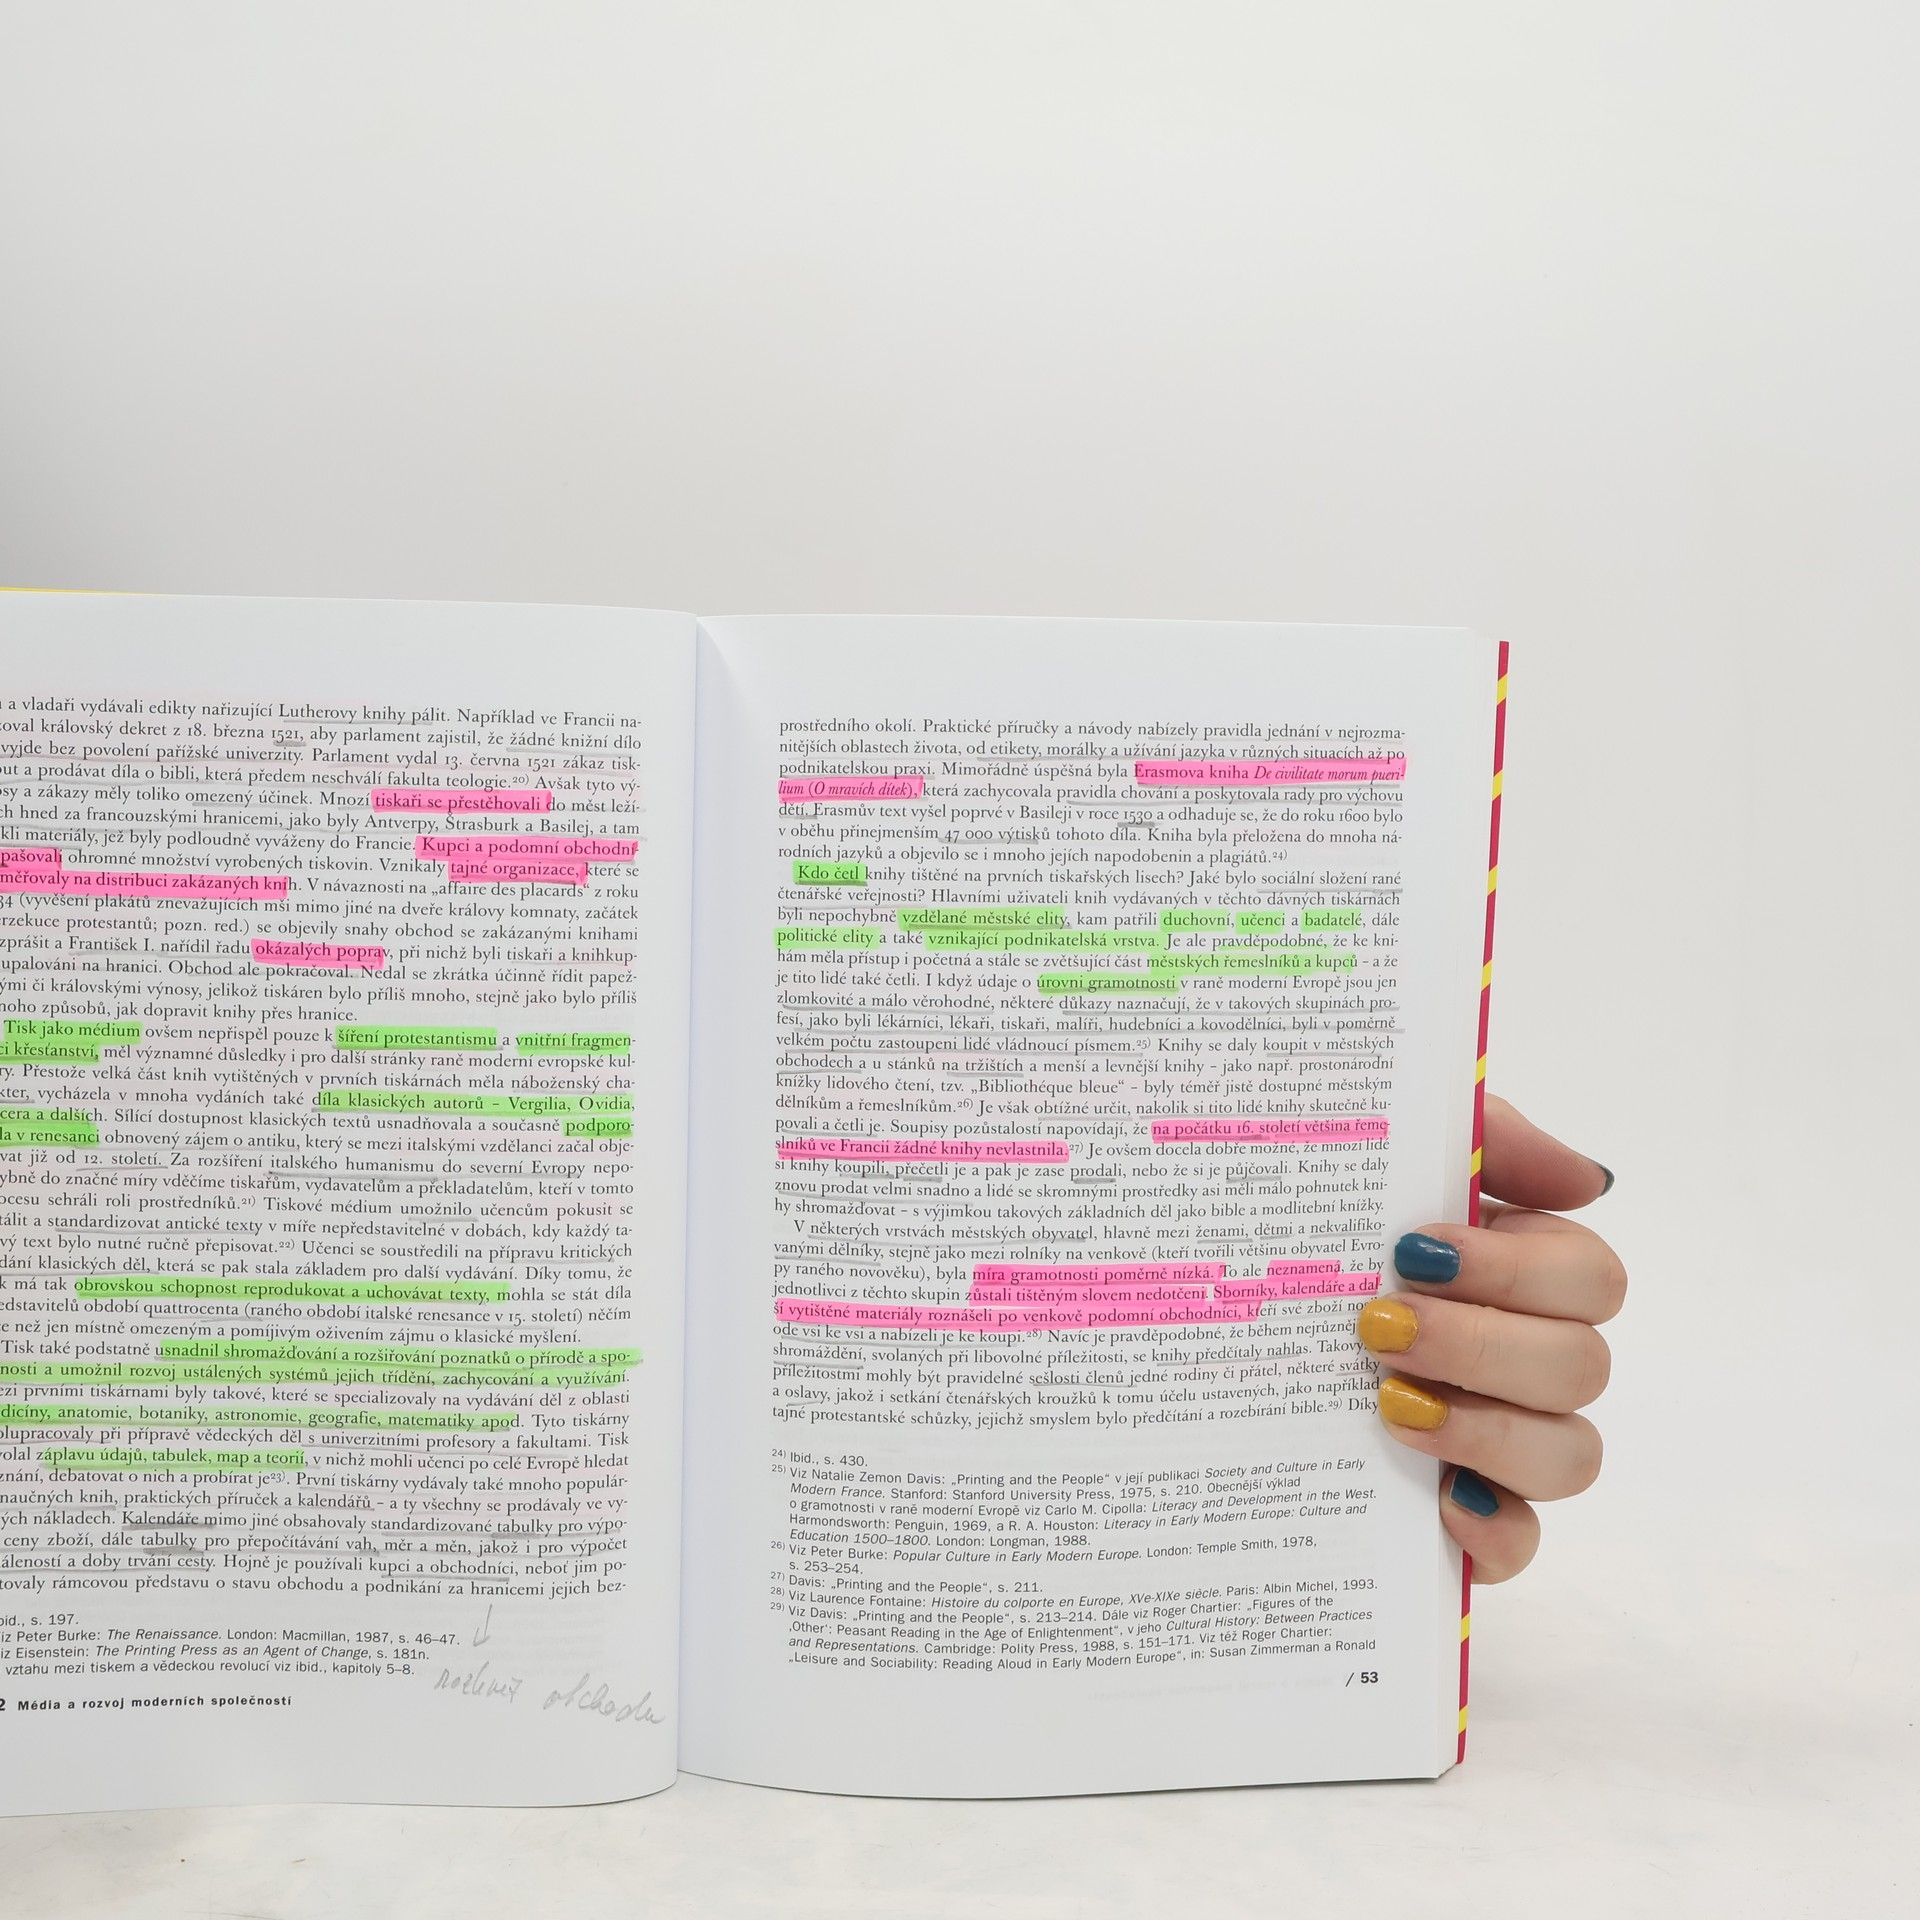 a vladaři vydávali edikty nařizující Lutherovy knihy pálit. Například ve Francii na-
královský dekret z 18. března 1521, aby parlament zajistil, že žádné knižní dílo
vyjde bez povolení pařížské univerzity. Parlament vydal 13. června 1521 zákaz tisk-
a prodávat díla o bibli, která předem neschválí fakulta teologie.²⁰⁾ Avšak tyto vý-
a zákazy měly toliko omezený účinek. Mnozí tiskaři se přestěhovali do měst leží-
hned za francouzskými hranicemi, jako byly Antverpy, Štrasburk a Basilej, a tam
materiály, jež byly podloudně vyváženy do Francie. Kupci a podomní obchodní-
pašovali ohromné množství vyrobených tiskovin. Vznikaly tajné organizace, které se
měřovaly na distribuci zakázaných knih. V návaznosti na „affaire des placards“ z roku
34 (vyvěšení plakátů znevažujících mši mimo jiné na dveře královy komnaty, začátek
perzekuce protestantů; pozn. red.) se objevily snahy obchod se zakázanými knihami
zprášit a František I. nařídil řadu okázalých poprav, při nichž byli tiskaři a knihkup-
upalováni na hranici. Obchod ale pokračoval. Nedal se zkrátka účinně řídit papež-
ými či královskými výnosy, jelikož tiskáren bylo příliš mnoho, stejně jako bylo příliš
noho způsobů, jak dopravit knihy přes hranice.
Tisk jako médium ovšem nepřispěl pouze k šíření protestantismu a vnitřní fragmen-
ci křesťanství, měl významné důsledky i pro další stránky raně moderní evropské kul-
ry. Přestože velká část knih vytištěných v prvních tiskárnách měla náboženský cha-
kter, vycházela v mnoha vydáních také díla klasických autorů – Vergilia, Ovidia,
cera a dalších. Sílící dostupnost klasických textů usnadňovala a současně podporo-
la v renesanci obnovený zájem o antiku, který se mezi italskými vzdělanci začal obje-
vat již od 12. století. Za rozšíření italského humanismu do severní Evropy nepo-
ybně do značné míry vděčíme tiskařům, vydavatelům a překladatelům, kteří v tomto
ocesu sehráli roli prostředníků.²¹⁾ Tiskové médium umožnilo učencům pokusit se
tálit a standardizovat antické texty v míře nepředstavitelné v dobách, kdy každý ta-
vý text bylo nutné ručně přepisovat.²²⁾ Učenci se soustředili na přípravu kritických
dání klasických děl, která se pak stala základem pro další vydávání. Díky tomu, že
k má tak obrovskou schopnost reprodukovat a uchovávat texty, mohla se stát díla
edstavitelů období quattrocenta (raného období italské renesance v 15. století) něčím
ce než jen místně omezeným a pomíjivým oživením zájmu o klasické myšlení.
Tisk také podstatně usnadnil shromažďování a rozšiřování poznatků o přírodě a spo-
nosti a umožnil rozvoj ustálených systémů jejich třídění, zachycování a využívání.
ezi prvními tiskárnami byly takové, které se specializovaly na vydávání děl z oblasti
dicíny, anatomie, botaniky, astronomie, geografie, matematiky apod. Tyto tiskárny
olupracovaly při přípravě vědeckých děl s univerzitními profesory a fakultami. Tisk
volal záplavu údajů, tabulek, map a teorií, v nichž mohli učenci po celé Evropě hledat
znání, debatovat o nich a probírat je²³⁾. První tiskárny vydávaly také mnoho populár-
naučných knih, praktických příruček a kalendářů – a ty všechny se prodávaly ve vy-
ých nákladech. Kalendáře mimo jiné obsahovaly standardizované tabulky pro výpo-
ceny zboží, dále tabulky pro přepočítávání vah, měr a měn, jakož i pro výpočet
áleností a doby trvání cesty. Hojně je používali kupci a obchodníci, neboť jim po-
tovaly rámcovou představu o stavu obchodu a podnikání za hranicemi jejich bez-
bid., s. 197.
iz Peter Burke: The Renaissance. London: Macmillan, 1987, s. 46–47.
iz Eisenstein: The Printing Press as an Agent of Change, s. 181n.
vztahu mezi tiskem a vědeckou revolucí viz ibid., kapitoly 5–8.
obchodu
2 Média a rozvoj moderních společností
prostředního okolí. Praktické příručky a návody nabízely pravidla jednání v nejrozma-
nitějších oblastech života, od etikety, morálky a užívání jazyka v různých situacích až po
podnikatelskou praxi. Mimořádně úspěšná byla Erasmova kniha De civilitate morum pueri-
lium (O mravích dítek), která zachycovala pravidla chování a poskytovala rady pro výchovu
dětí. Erasmův text vyšel poprvé v Basileji v roce 1530 a odhaduje se, že do roku 1600 bylo
v oběhu přinejmenším 47 000 výtisků tohoto díla. Kniha byla přeložena do mnoha ná-
rodních jazyků a objevilo se i mnoho jejích napodobenin a plagiátů.²⁴⁾
Kdo četl knihy tištěné na prvních tiskařských lisech? Jaké bylo sociální složení rané
čtenářské veřejnosti? Hlavními uživateli knih vydávaných v těchto dávných tiskárnách
byli nepochybně vzdělané městské elity, kam patřili duchovní, učenci a badatelé, dále
politické elity a také vznikající podnikatelská vrstva. Je ale pravděpodobné, že ke kni-
hám měla přístup i početná a stále se zvětšující část městských řemeslníků a kupců – a že
je tito lidé také četli. I když údaje o úrovni gramotnosti v raně moderní Evropě jsou jen
zlomkovité a málo věrohodné, některé důkazy naznačují, že v takových skupinách pro-
fesí, jako byli lékárníci, lékaři, tiskaři, malíři, hudebníci a kovodělníci, byli v poměrně
velkém počtu zastoupeni lidé vládnoucí písmem.²⁵⁾ Knihy se daly koupit v městských
obchodech a u stánků na tržištích a menší a levnější knihy – jako např. prostonárodní
knížky lidového čtení, tzv. „Bibliothéque bleue“ – byly téměř jistě dostupné městským
dělníkům a řemeslníkům.²⁶⁾ Je však obtížné určit, nakolik si tito lidé knihy skutečně ku-
povali a četli je. Soupisy pozůstalostí napovídají, že na počátku 16. století většina řeme-
slníků ve Francii žádné knihy nevlastnila.²⁷⁾ Je ovšem docela dobře možné, že mnozí lidé
si knihy koupili, přečetli je a pak je zase prodali, nebo že si je půjčovali. Knihy se daly
znovu prodat velmi snadno a lidé se skromnými prostředky asi měli málo pohnutek kni-
hy shromažďovat – s výjimkou takových základních děl jako bible a modlitební knížky.
V některých vrstvách městských obyvatel, hlavně mezi ženami, dětmi a nekvalifiko-
vanými dělníky, stejně jako mezi rolníky na venkově (kteří tvořili většinu obyvatel Evro-
py raného novověku), byla míra gramotnosti poměrně nízká. To ale neznamená, že by
jednotlivci z těchto skupin zůstali tištěným slovem nedotčeni. Sborníky, kalendáře a dal-
ší vytištěné materiály roznášeli po venkově podomní obchodníci, kteří své zboží
ode vsi ke vsi a nabízeli je ke koupi.²⁸⁾ Navíc je pravděpodobné, že během nejrůzněj
shromáždění, svolaných při libovolné příležitosti, se knihy předčítaly nahlas. Takový
příležitostmi mohly být pravidelné sešlosti členů jedné rodiny či přátel, některé svátky
a oslavy, jakož i setkání čtenářských kroužků k tomu účelu ustavených, jako například
tajné protestantské schůzky, jejichž smyslem bylo předčítání a rozebírání bible.²⁹⁾ Díky
²⁴⁾ Ibid., s. 430.
²⁵⁾ Viz Natalie Zemon Davis: „Printing and the People“ v její publikaci Society and Culture in Early
Modern France. Stanford: Stanford University Press, 1975, s. 210. Obecnější výklad
o gramotnosti v raně moderní Evropě viz Carlo M. Cipolla: Literacy and Development in the West.
Harmondsworth: Penguin, 1969, a R. A. Houston: Literacy in Early Modern Europe: Culture and
Education 1500–1800. London: Longman, 1988.
²⁶⁾ Viz Peter Burke: Popular Culture in Early Modern Europe. London: Temple Smith, 1978,
s. 253–254.
²⁷⁾ Davis: „Printing and the People“, s. 211.
²⁸⁾ Viz Laurence Fontaine: Histoire du colporte en Europe, XVe-XIXe siècle. Paris: Albin Michel, 1993.
²⁹⁾ Viz Davis: „Printing and the People“, s. 213–214. Dále viz Roger Chartier: „Figures of the
‚Other‘: Peasant Reading in the Age of Enlightenment“, v jeho Cultural History: Between Practices
and Representations. Cambridge: Polity Press, 1988, s. 151–171. Viz též Roger Chartier:
„Leisure and Sociability: Reading Aloud in Early Modern Europe“, in: Susan Zimmerman a Ronald
/ 53